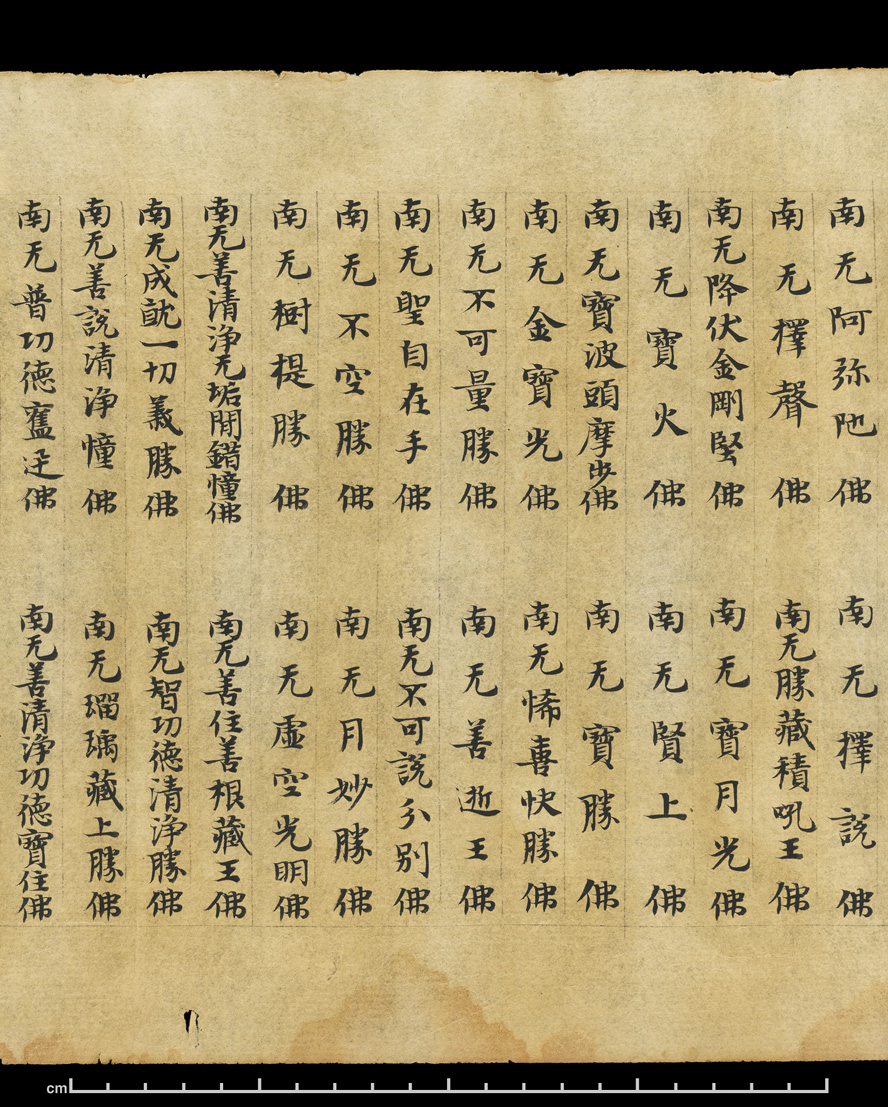 南无阿弥陁佛 南无釋說佛
南无釋聲佛 南无勝藏積吼王佛
南无降伏金剛堅佛 南无寶月光佛
南无寶火佛 南无賢上佛
南无寶波頭摩步佛 南无寶勝佛
南无金寶光佛 南无悕喜快勝佛
南无不可量勝佛 南无善逝王佛
南无聖自在手佛 南无不可說分別佛
南无不空勝佛 南无月妙勝佛
南无樹提勝佛 南无虛空光明佛
南无善清淨无垢開錯幢佛 南无善住善根藏王佛
南无成就一切義勝佛 南无智功德清淨勝佛
南无善說清淨幢佛 南无瑠璃藏上勝佛
南无普功德奮迅佛 南无善清淨功德寶住佛
cm